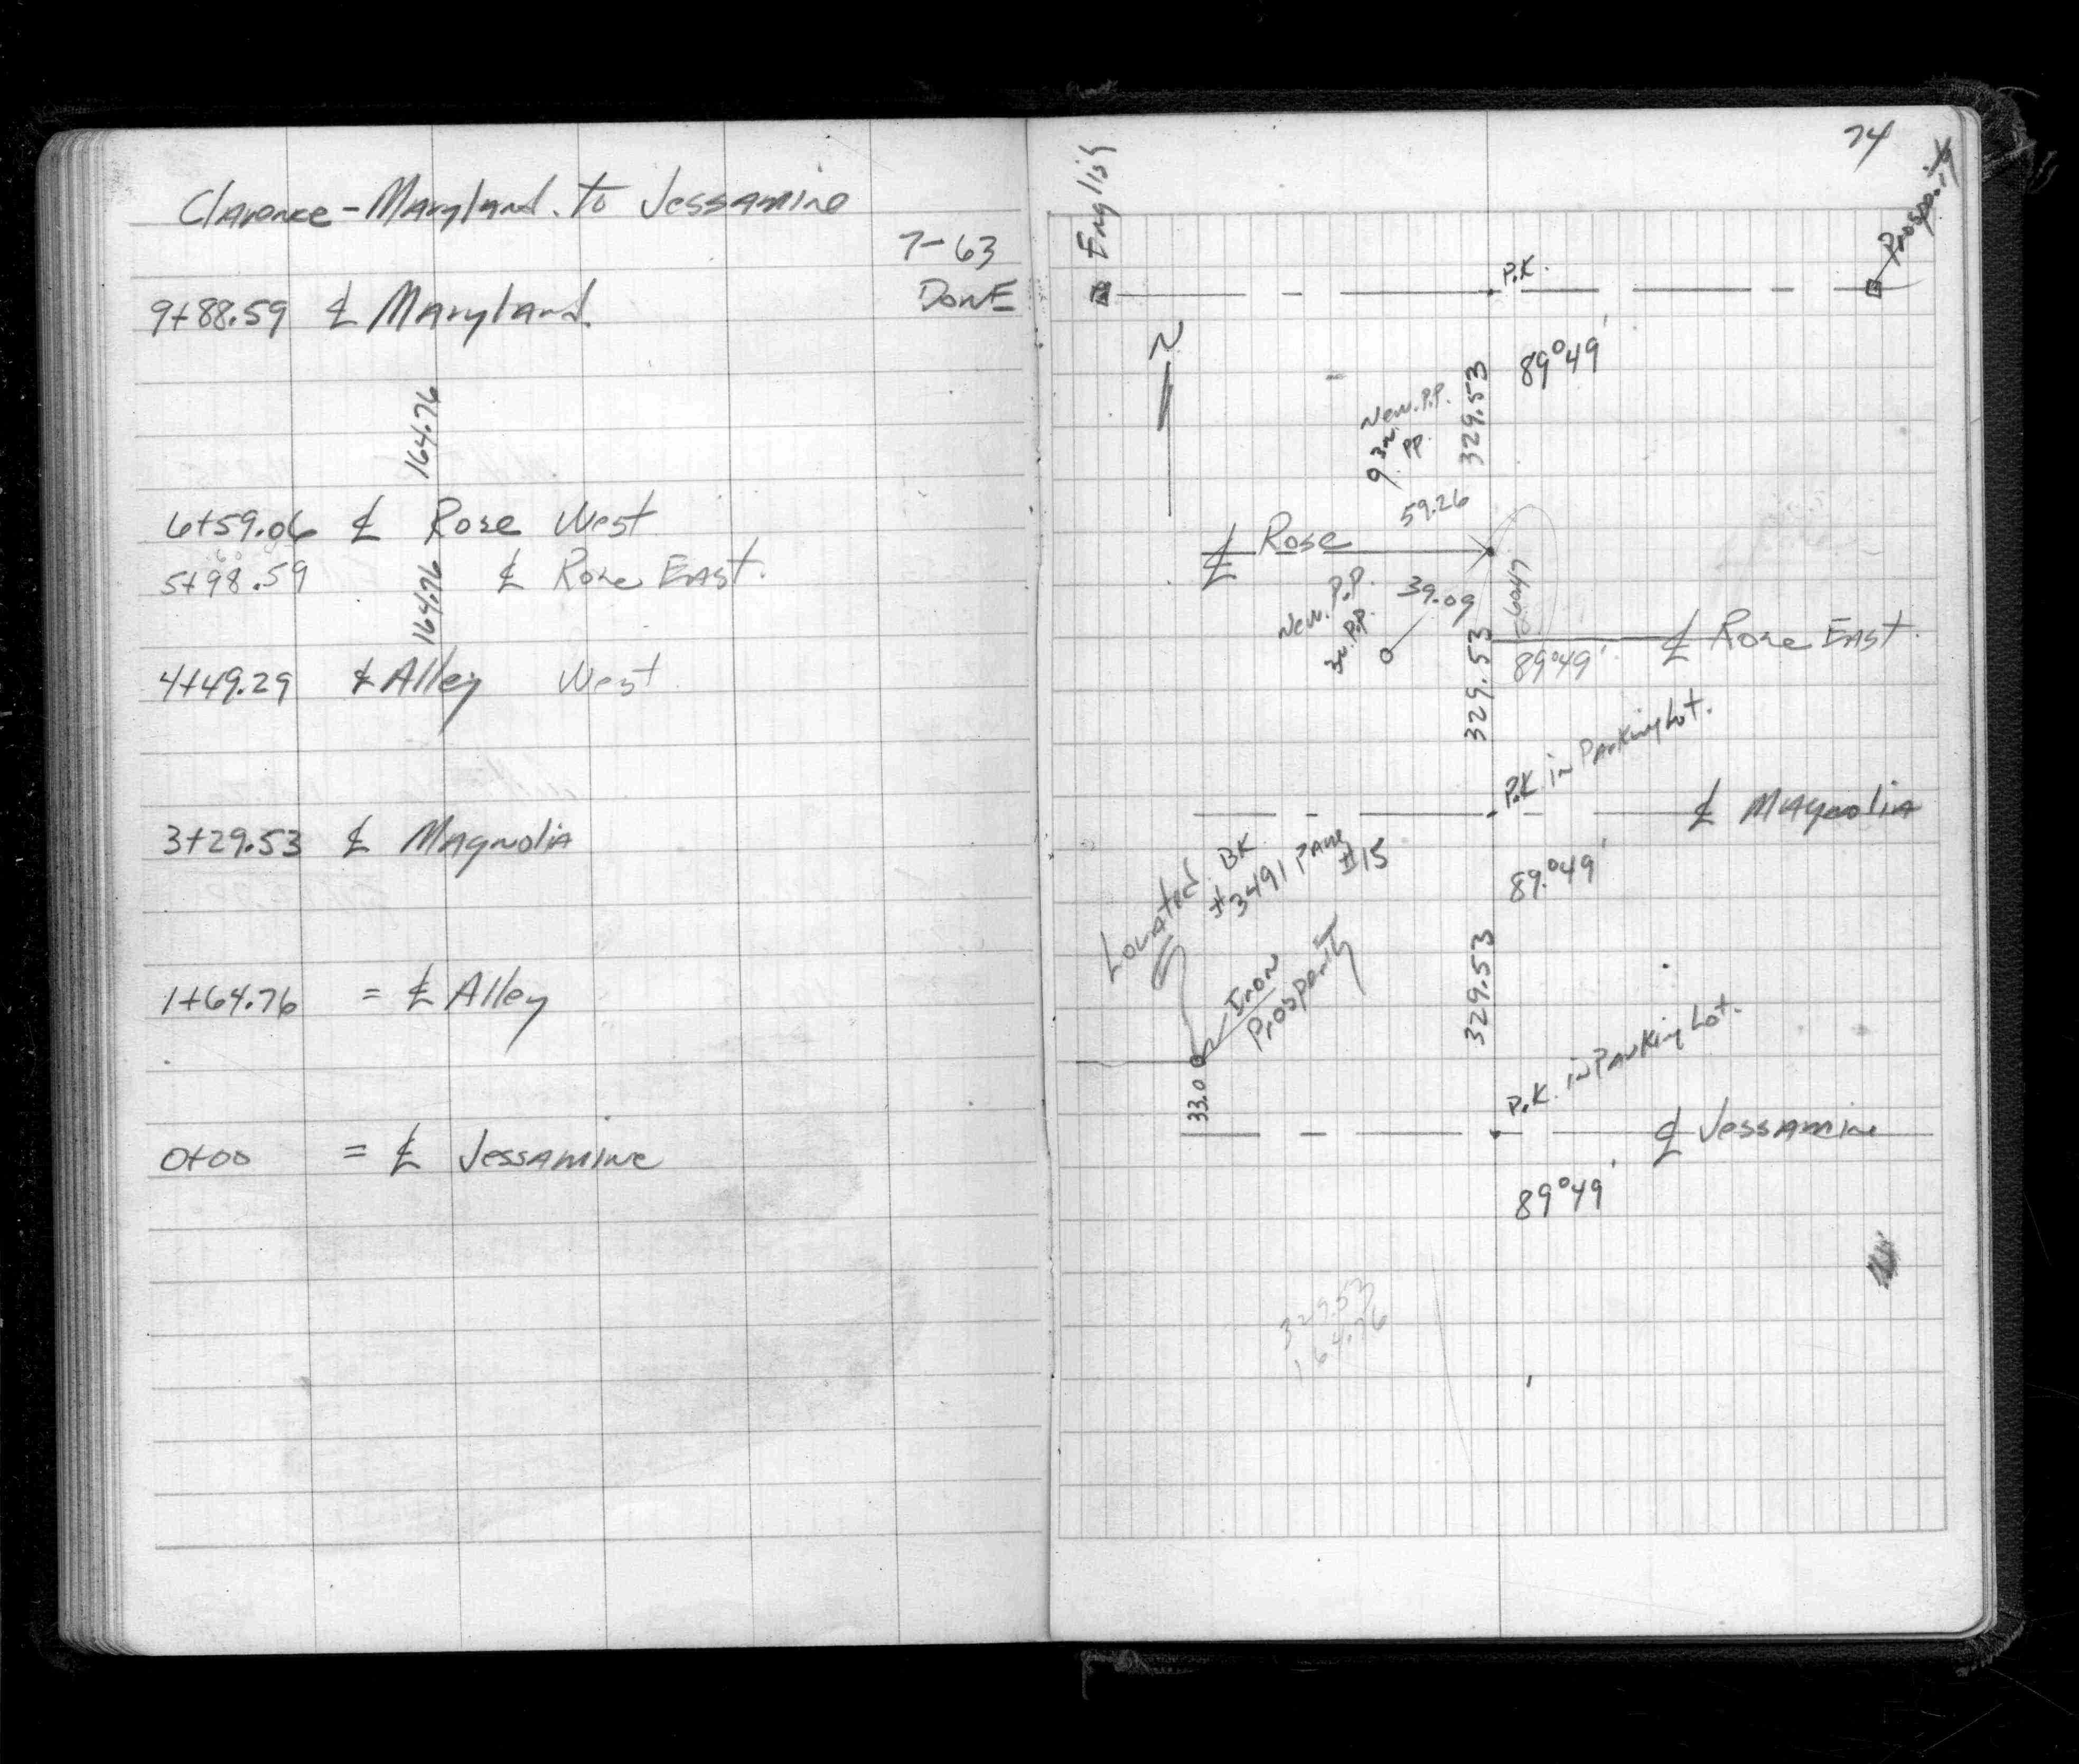 Clarence - Maryland. to Jessamine
7-63
DONE
9+88.59 ℄ Maryland.
164.76
6+59.06 ℄ Rose West
5+98.59 ℄ Rose East.
164.76
4+49.29 ℄ Alley West
3+29.53 ℄ Magnolia
1+64.76 = ℄ Alley
0+00 = ℄ Jessamine
74
English
Prosperity
P.K.
N
89°49'
329.53
New. P.P.
PP.
59.26
℄ Rose
New. P.P.
39.09
60.47
329.53
89°49'
℄ Rose East.
P.K. in Parking Lot.
℄ Magnolia
Located. BK
#3491 Page
#15
89°49'
Iron
Prosperity
329.53
33.0
P.K. in Parking Lot.
℄ Jessamine
89°49'
329.53
164.76